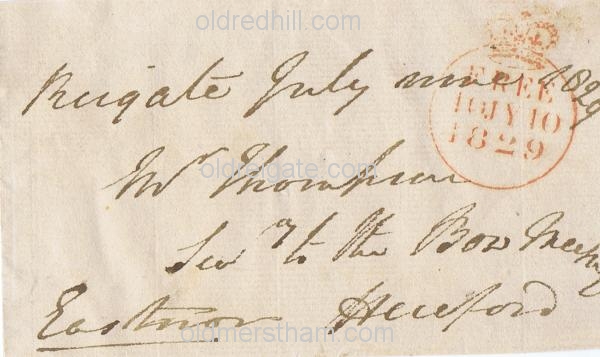 oldredhill.com
FREE
10 JY 10
1829
Reigate July nine 1829
oldreigate.com
Mr Thompson
Secy to the Bow Meeting
Eastnor Hereford
oldmerstham.com